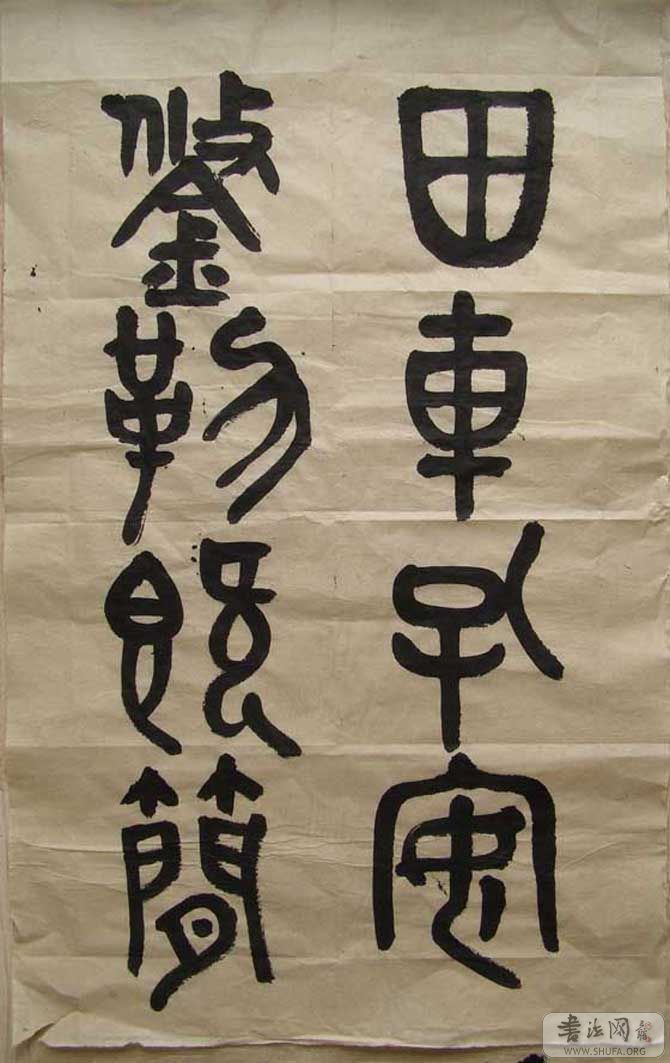 田車孔安
鋚勒既簡
書法网
WWW.SHUFA.ORG